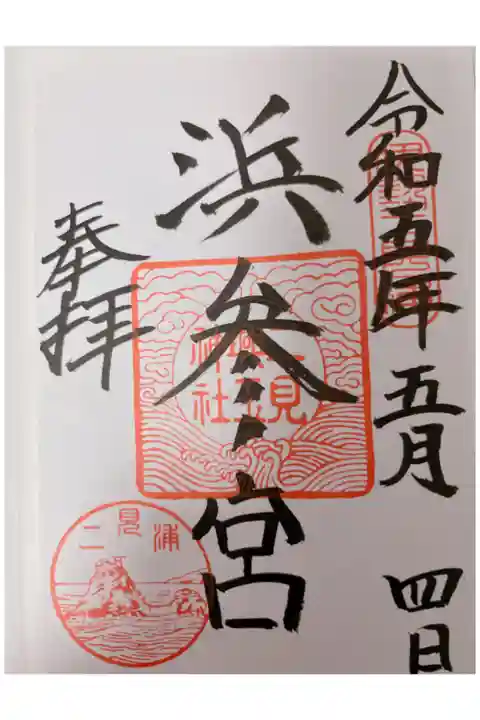 令和五年 五月 四日
浜参宮
二見
興玉
神社
奉拝
二見浦